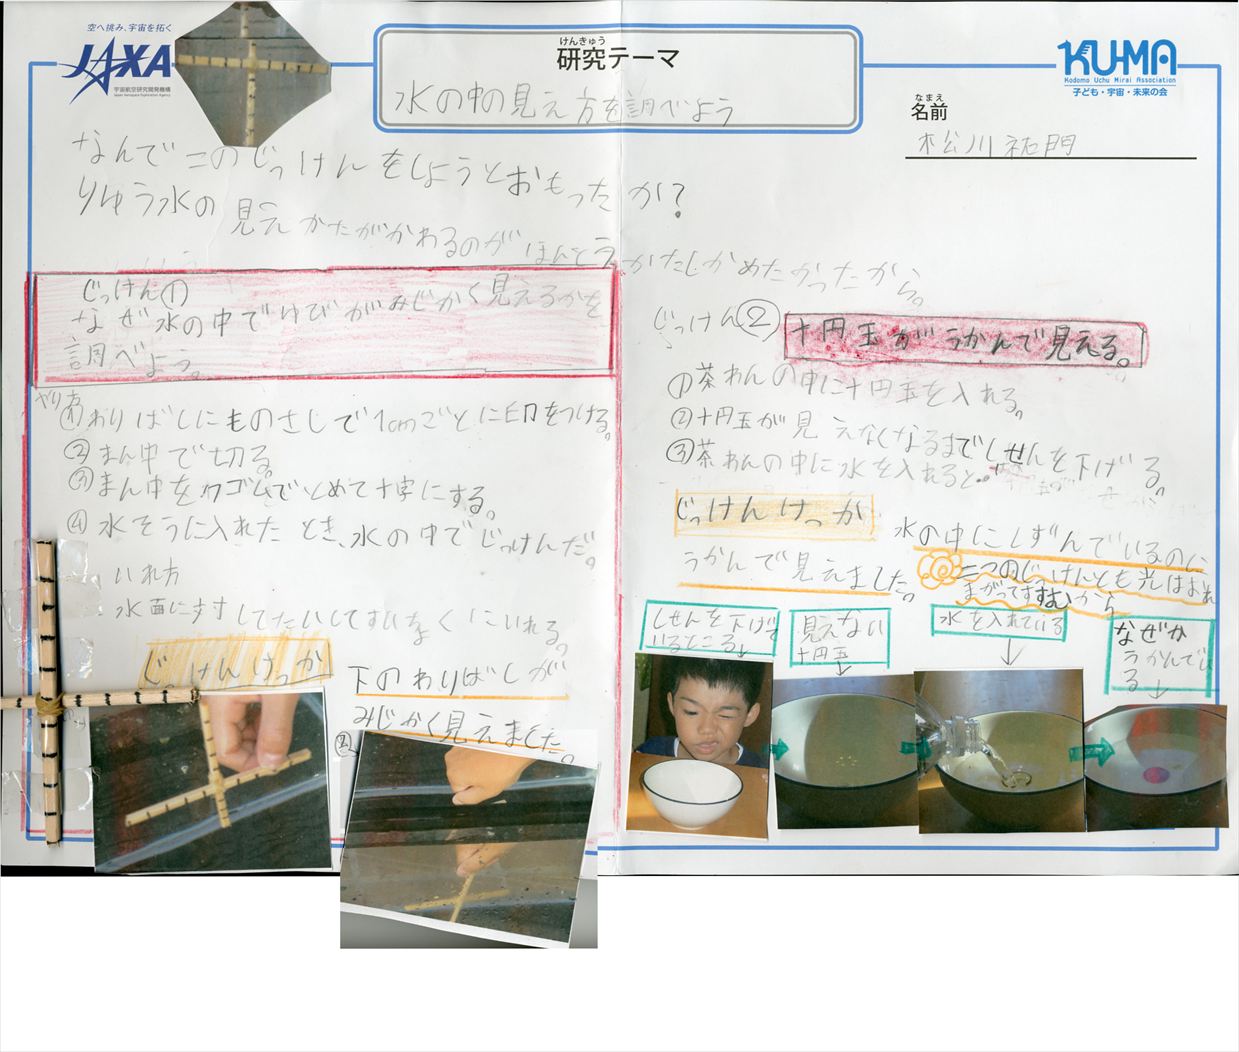 空へ挑み、宇宙を拓く
JAXA
宇宙航空研究開発機構
Japan Aerospace Exploration Agency
けんきゅう
研究テーマ
水の中の見え方を調べよう
KU-MA
Kodomo Uchu Mirai Association
子ども・宇宙・未来の会
なまえ
名前
松川祐門
なんでこのじっけんをしようとおもったか?
りゅう水の見えかたがかわるのがほんとうかたしかめたかったから。
じっけん①
なぜ水の中でゆびがみじかく見えるかを
調べよう。
やり方
①わりばしにものさしで1cmごとに印をつける。
②まん中で切る。
③まん中をワゴムでとめて十字にする。
④水そうに入れたとき、水の中でじっけんだ。
いれ方
水面にたいしてすいちょくにいれる。
じっけんけっか
下のわりばしが
みじかく見えました。
②
じっけん②
十円玉がうかんで見える。
①茶わんの中に十円玉を入れる。
②十円玉が見えなくなるまでしせんを下げる。
③茶わんの中に水を入れると
じっけんけっか
水の中にしずんでいるのに
うかんで見えました。
二つのじけんとも光はおれ
まがってすすむから
しせんを下げて
いるところ
見えない
十円玉
水を入れている
なぜか
うかんでいる